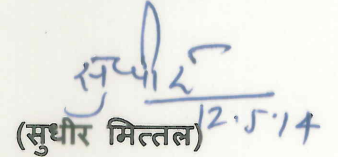 सुधीर
12.5.14
(सुधीर मित्तल)